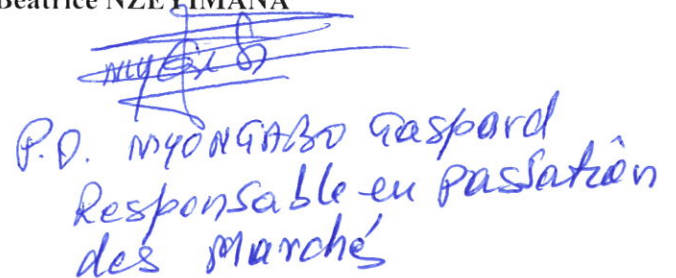 Béatrice NZEYIMANA
P.O. NIYONGABO Gaspard
Responsable en Passation
des Marchés